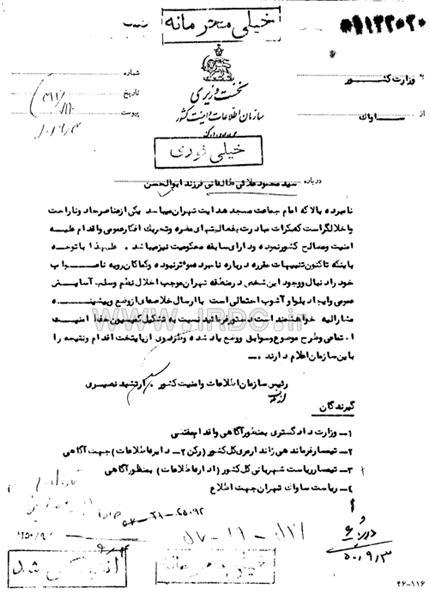 خیلی محرمانه
به وزارت کشور
از ساواک
نخست وزیری
سازمان اطلاعات و امنیت کشور
شماره
تاریخ
پیوست
خیلی فوری
درباره سید محمود علائی طالقانی فرزند ابوالحسن
نامبرده بالا که امام جماعت مسجد هدایت تهران میباشد یکی از عناصر حاد و ناراحت
و اخلالگر است که بکرات مبادرت بفعالیتهای مضره و تحریک افکار عمومی و اقدام علیه
امنیت و مصالح کشور نموده و دارای سابقه محکومیت نیز میباشد. علیهذا با توجه
باینکه تاکنون تنبیهات مقرره درباره نامبرده موثر نبوده و کماکان رویه ناصواب
خود را دنبال و وجود این شخص در منطقه تهران موجب اخلال نظم و سلب آسایش
عمومی و ایجاد بلوا و آشوب احتمالی است با ارسال خلاصه‌ای از وضع و پیشینه
مشارالیه خواهشمند است دستور فرمائید نسبت به تشکیل کمیسیون حفظ امنیت
اجتماعی و طرح موضوع و سوابق و وضع یاد شده و طرد وی از پایتخت اقدام و نتیجه را
باین سازمان اعلام دارند.
www.IRDC.ir
رئیس سازمان اطلاعات و امنیت کشور. ارتشبد نصیری
گیرندگان
۱- وزارت دادگستری بمنظور آگاهی و اقدام مقتضی
۲- تیمسار فرماندهی ژاندارمری کل کشور (رکن ۲- دایره اطلاعات) جهت آگاهی
۳- تیمسار ریاست شهربانی کل کشور (اداره اطلاعات) بمنظور آگاهی
۴- ریاست ساواک تهران جهت اطلاع
۵۰/۹/۳
۲۶-۱۱۶